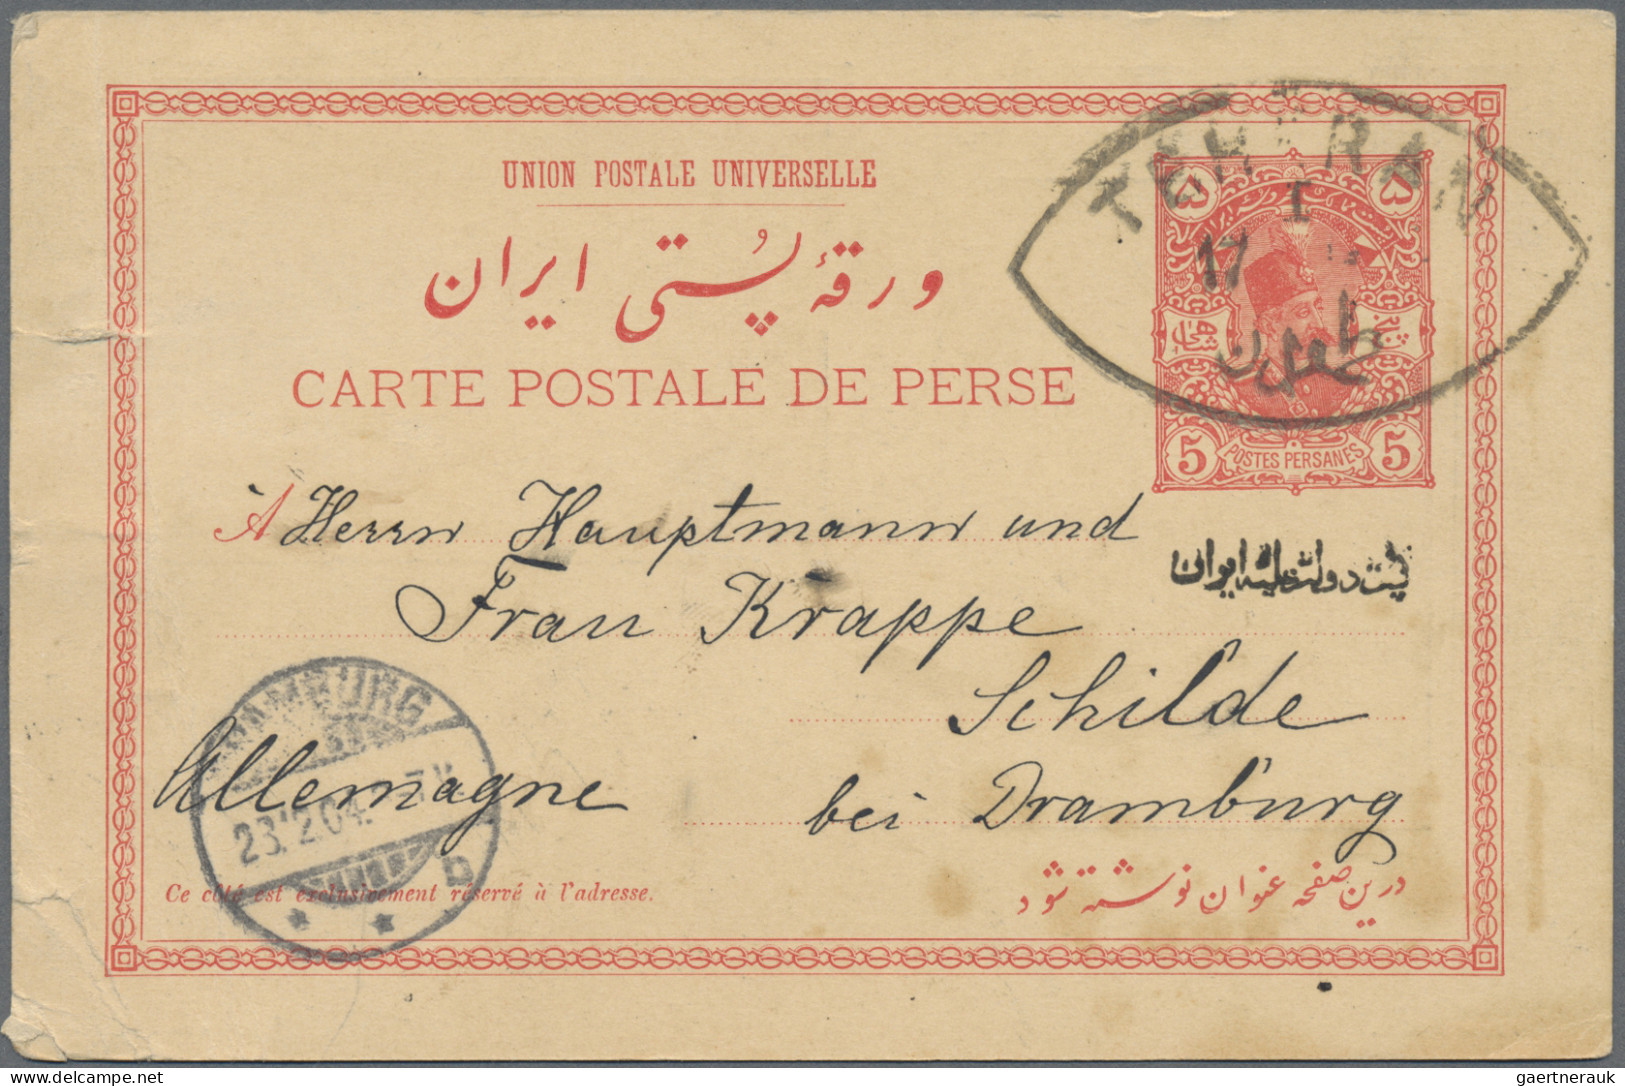 UNION POSTALE UNIVERSELLE
ورقهٔ پستی ایران
CARTE POSTALE DE PERSE
TEHERAN
I
17
طهران
۵ ۵
5 POSTES PERSANES 5
À Herrn Hauptmann und
پست دولت علیه ایران
Frau Krappe
Schilde
Allemagne bei Dramburg
DRAMBURG
23.12.04. 7V
b
Ce côté est exclusivement réservé à l'adresse.
درین صفحه عنوان نوشته شود
gaertnerauk